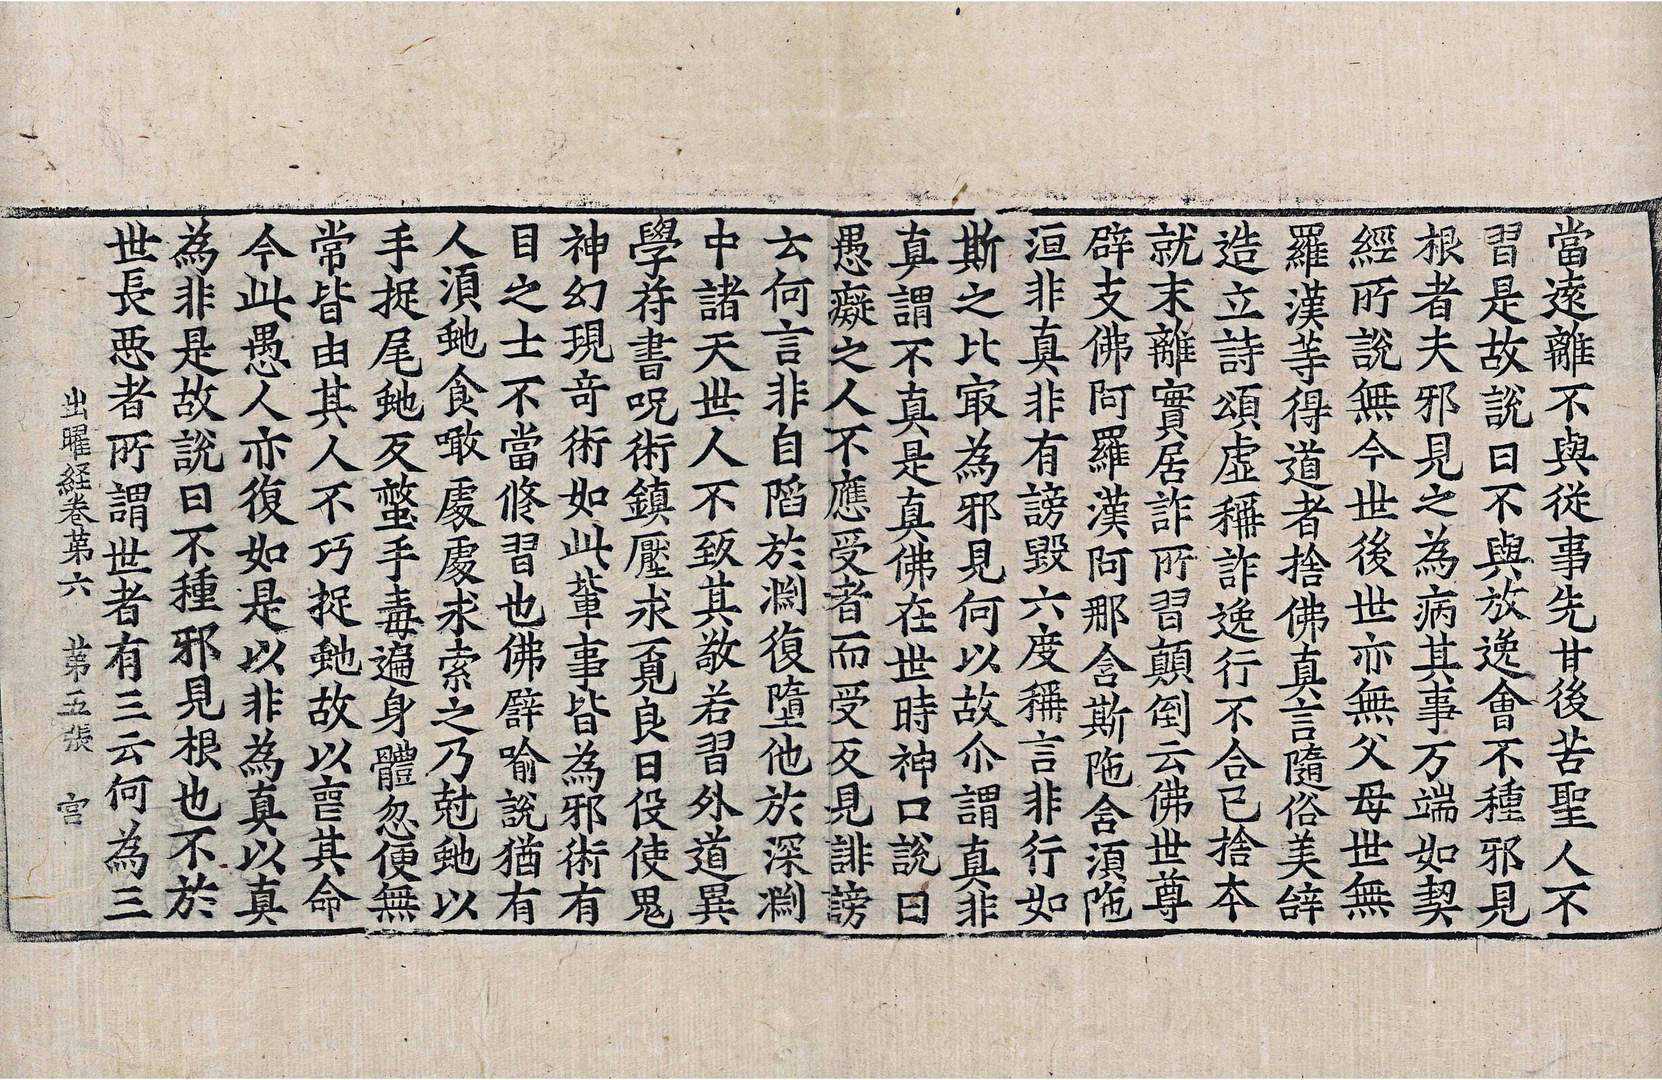 當遠離不與從事先甘後苦聖人不
習是故說曰不與放逸會不種邪見
根者夫邪見之為病其事万端如契
經所說無今世後世亦無父母世無
羅漢等得道者捨佛真言隨俗美辝
造立詩頌虛稱詐逸行不合己捨本
就末離實居詐所習顛倒云佛世尊
辟支佛阿羅漢阿那含斯陁含湏陁
洹非真非有謗毀六度稱言非行如
斯之比㝡為邪見何以故尒謂真非
真謂不真是真佛在世時神口說曰
愚癡之人不應受者而受反見誹謗
云何言非自陷於渊復墮他於深渊
中諸天世人不致其敬若習外道異
學苻書呪術鎮壓求覔良日伇使鬼
神幻現奇術如此輩事皆為邪術有
目之士不當修習也佛譬喻說猶有
人湏虵食噉處處求索之乃尅虵以
手捉尾虵反螫手毒遍身體忽便無
常皆由其人不巧捉虵故以喪其命
今此愚人亦復如是以非為真以真
為非是故說曰不種邪見根也不於
世長惡者所謂世者有三云何為三
出曜経卷第六 第五張 官